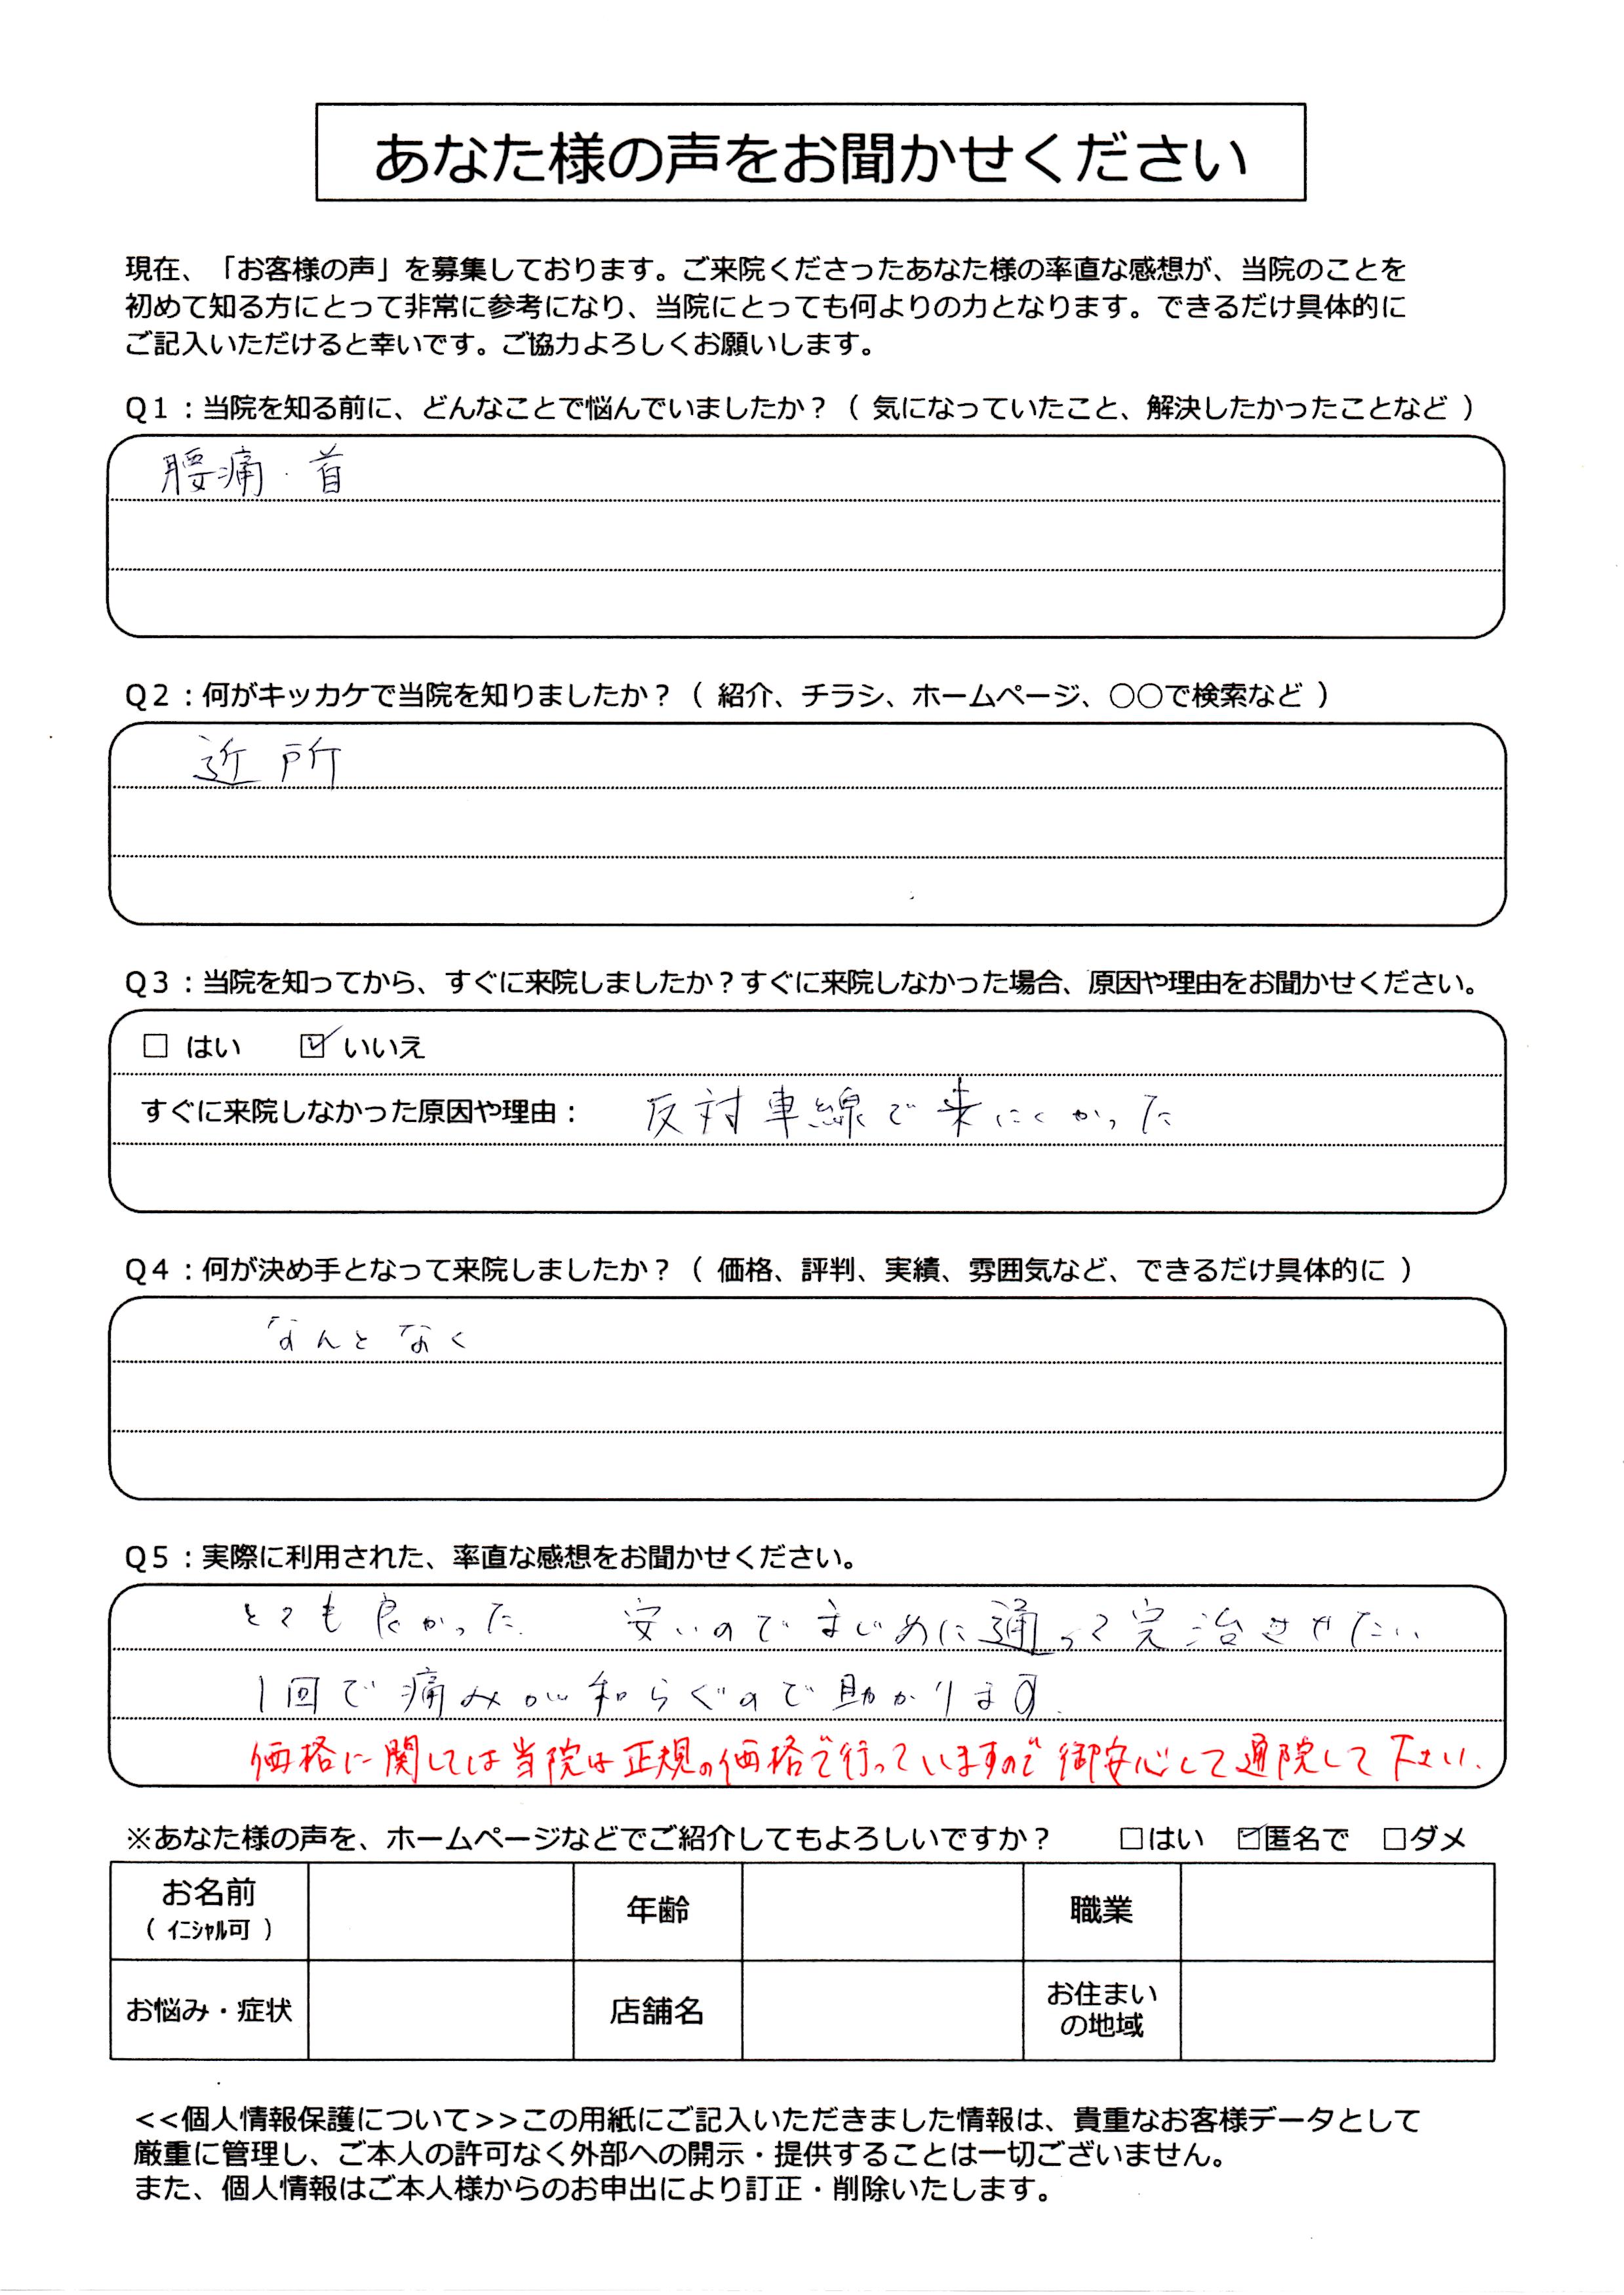 あなた様の声をお聞かせください
現在、「お客様の声」を募集しております。ご来院くださったあなた様の率直な感想が、当院のことを
初めて知る方にとって非常に参考になり、当院にとっても何よりの力となります。できるだけ具体的に
ご記入いただけると幸いです。ご協力よろしくお願いします。
Q1：当院を知る前に、どんなことで悩んでいましたか？（ 気になっていたこと、解決したかったことなど ）
腰痛・首
Q2：何がキッカケで当院を知りましたか？（ 紹介、チラシ、ホームページ、○○で検索など ）
近所
Q3：当院を知ってから、すぐに来院しましたか？すぐに来院しなかった場合、原因や理由をお聞かせください。
□ はい ☑ いいえ
すぐに来院しなかった原因や理由： 反対車線で来にくかった
Q4：何が決め手となって来院しましたか？（ 価格、評判、実績、雰囲気など、できるだけ具体的に ）
なんとなく
Q5：実際に利用された、率直な感想をお聞かせください。
とても良かった. 安いのでまじめに通って完治させたい
1回で痛みが和らぐので助かります.
価格に関しては当院は正規の価格で行っていますので御安心して通院して下さい.
※あなた様の声を、ホームページなどでご紹介してもよろしいですか？ □はい ☑匿名で □ダメ
お名前 年齢 職業
（ ｲﾆｼｬﾙ可 ）
お悩み・症状 店舗名 お住まい
の地域
<<個人情報保護について>>この用紙にご記入いただきました情報は、貴重なお客様データとして
厳重に管理し、ご本人の許可なく外部への開示・提供することは一切ございません。
また、個人情報はご本人様からのお申出により訂正・削除いたします。